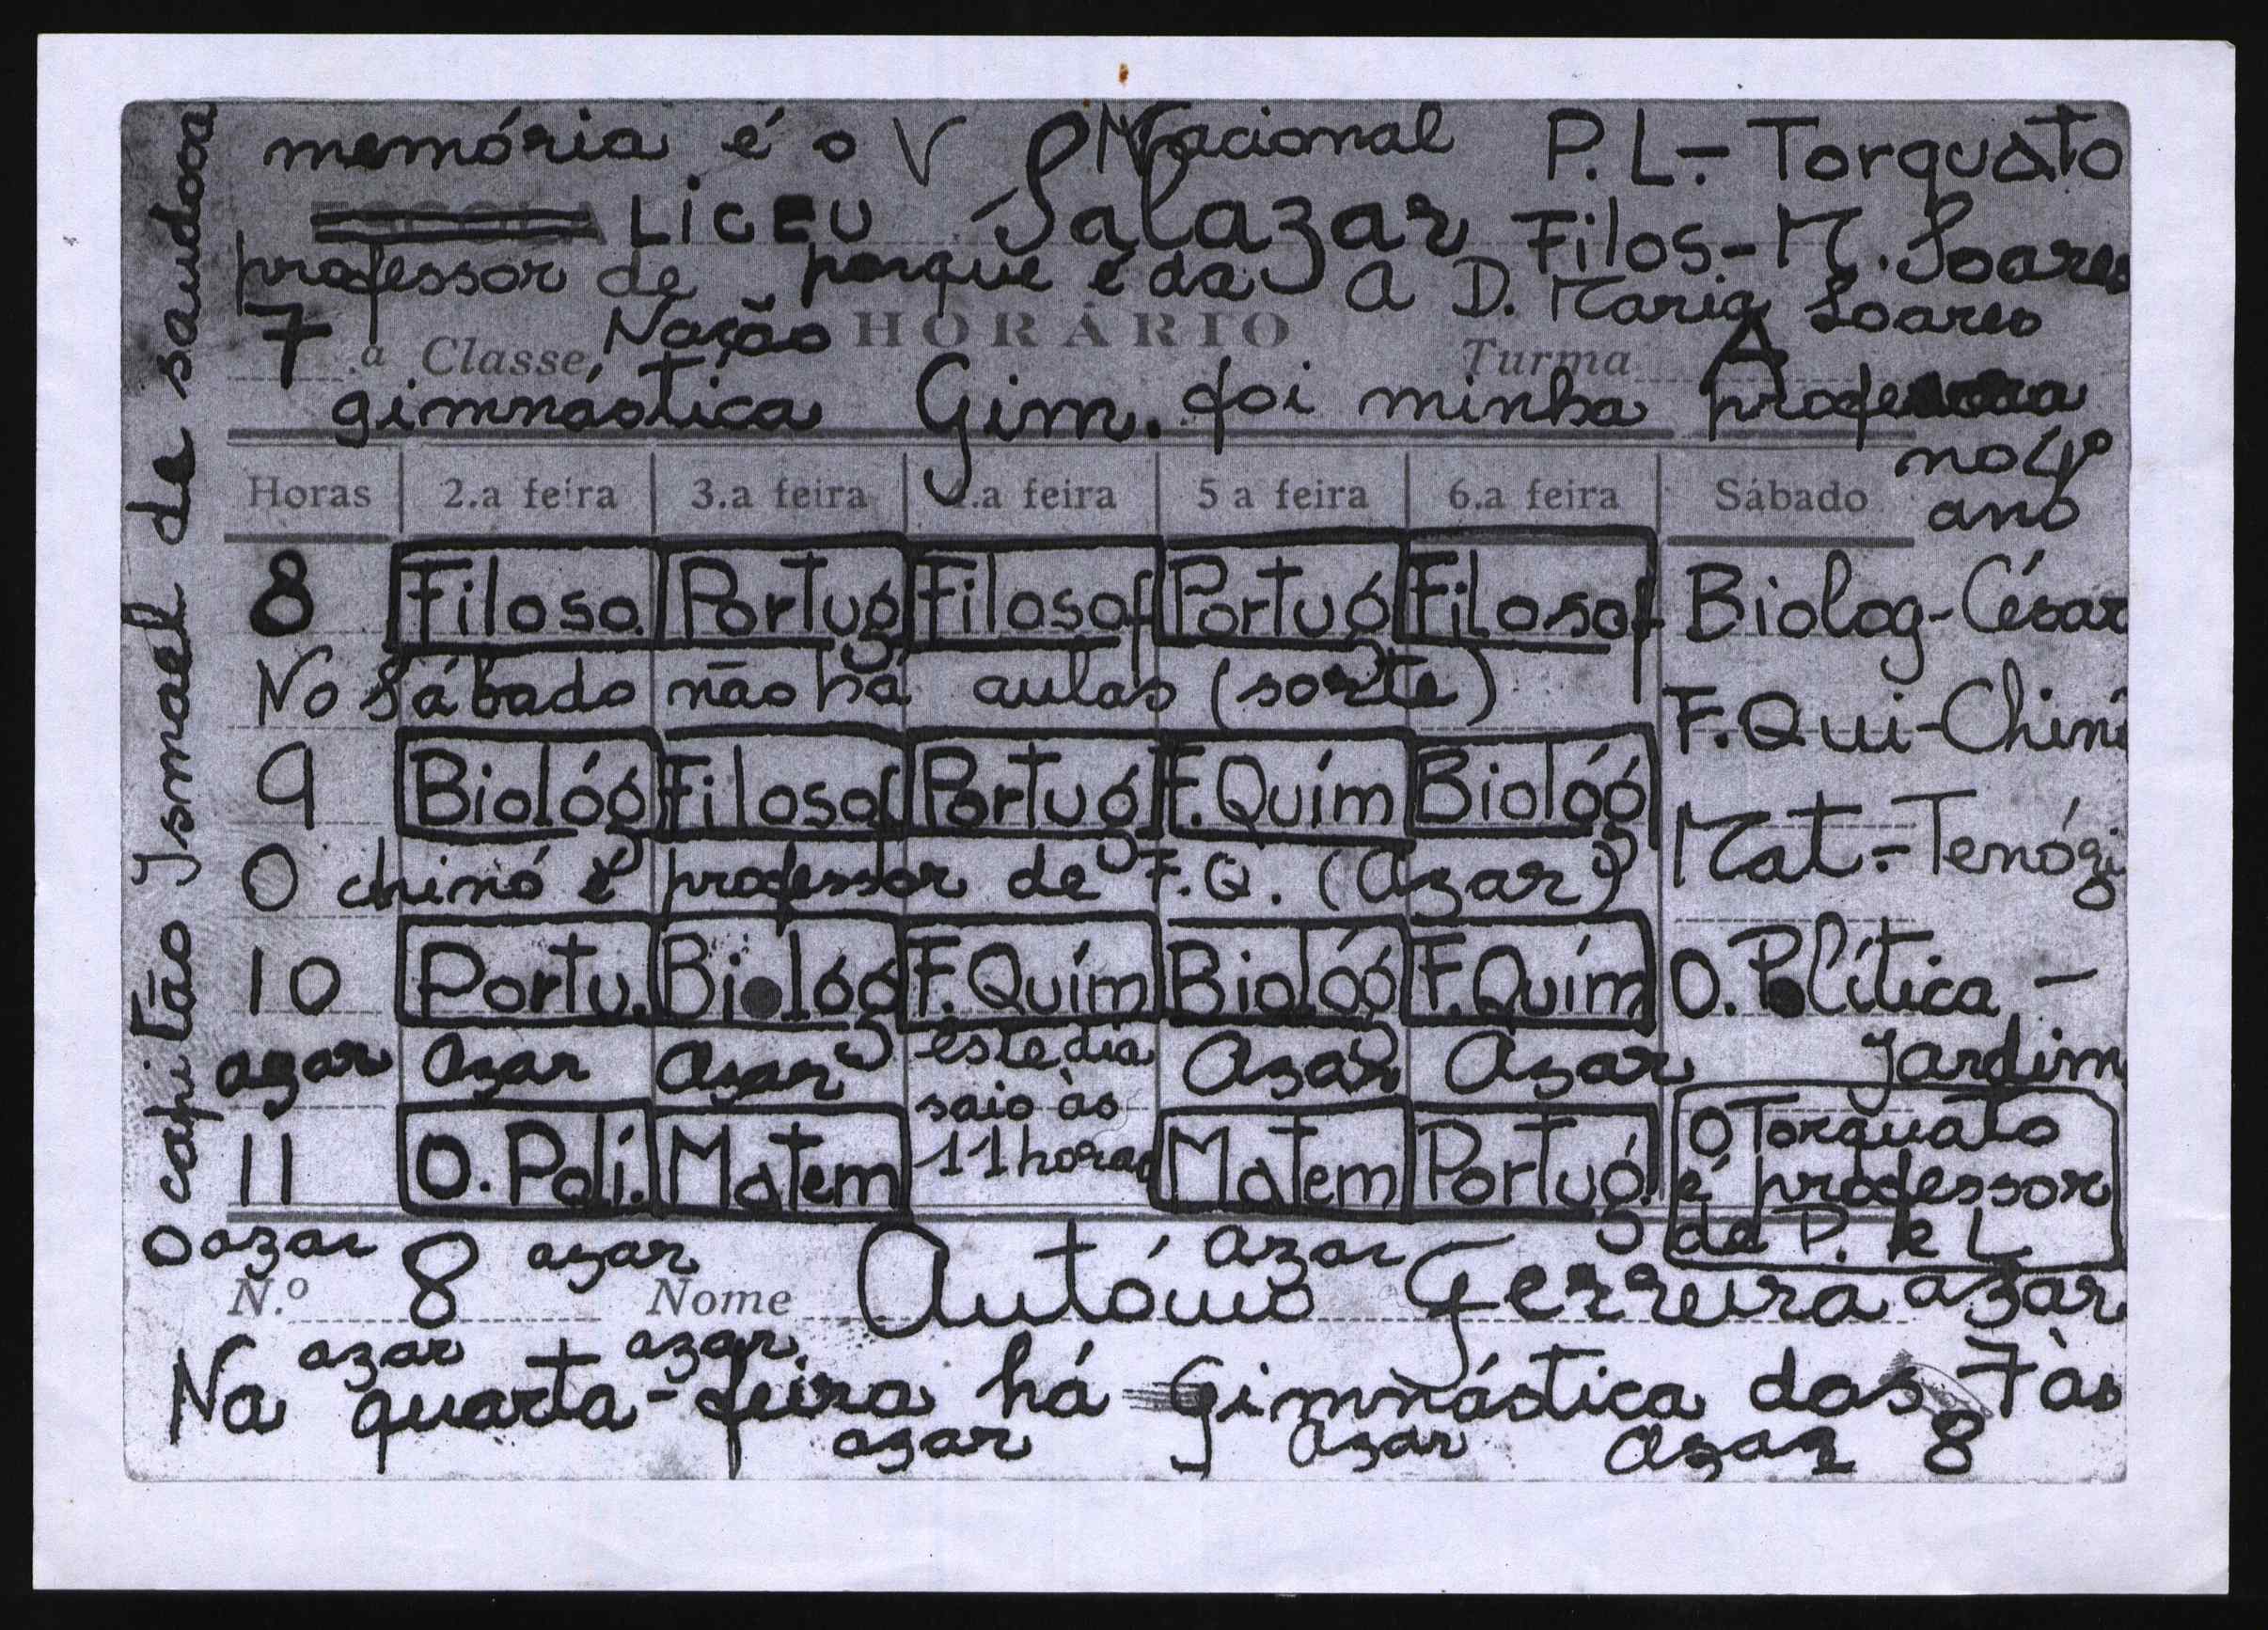 O capitão Ismael de saudosa
memória é o V Nacional P. L. - Torquato
LiCEU Salazar Filos. - M. Soares
professor de porque é da A D. Maria Soares
7.ª Classe Nação HORÁRIO Turma A
gimnástica Gim. foi minha professora
no 4º
ano
Horas 2.a feira 3.a feira 4.a feira 5 a feira 6.a feira Sábado
8 Filoso. Portug Filosof Portug Filosof Biolog - César
No Sábado não há aulas (sorte)
F. Qui - Chinó
9 Biológ Filosof Portug F. Quím Biológ
Mat. - Tenógi
O chinó é professor de F. Q. (Azar)
10 Portu. Biológ F. Quím Biológ F. Quím O. Política -
Jardim
azar azar azar este dia azar Azar
saio às
11 horas
11 O. Polí. Matem Matem Portug
O Torquato
é professor
de P. e L
azar azar azar
N.º 8 Nome António Ferreira azar
azar azar
Na quarta-feira há Gimnástica das 7 às
8
azar azar azar